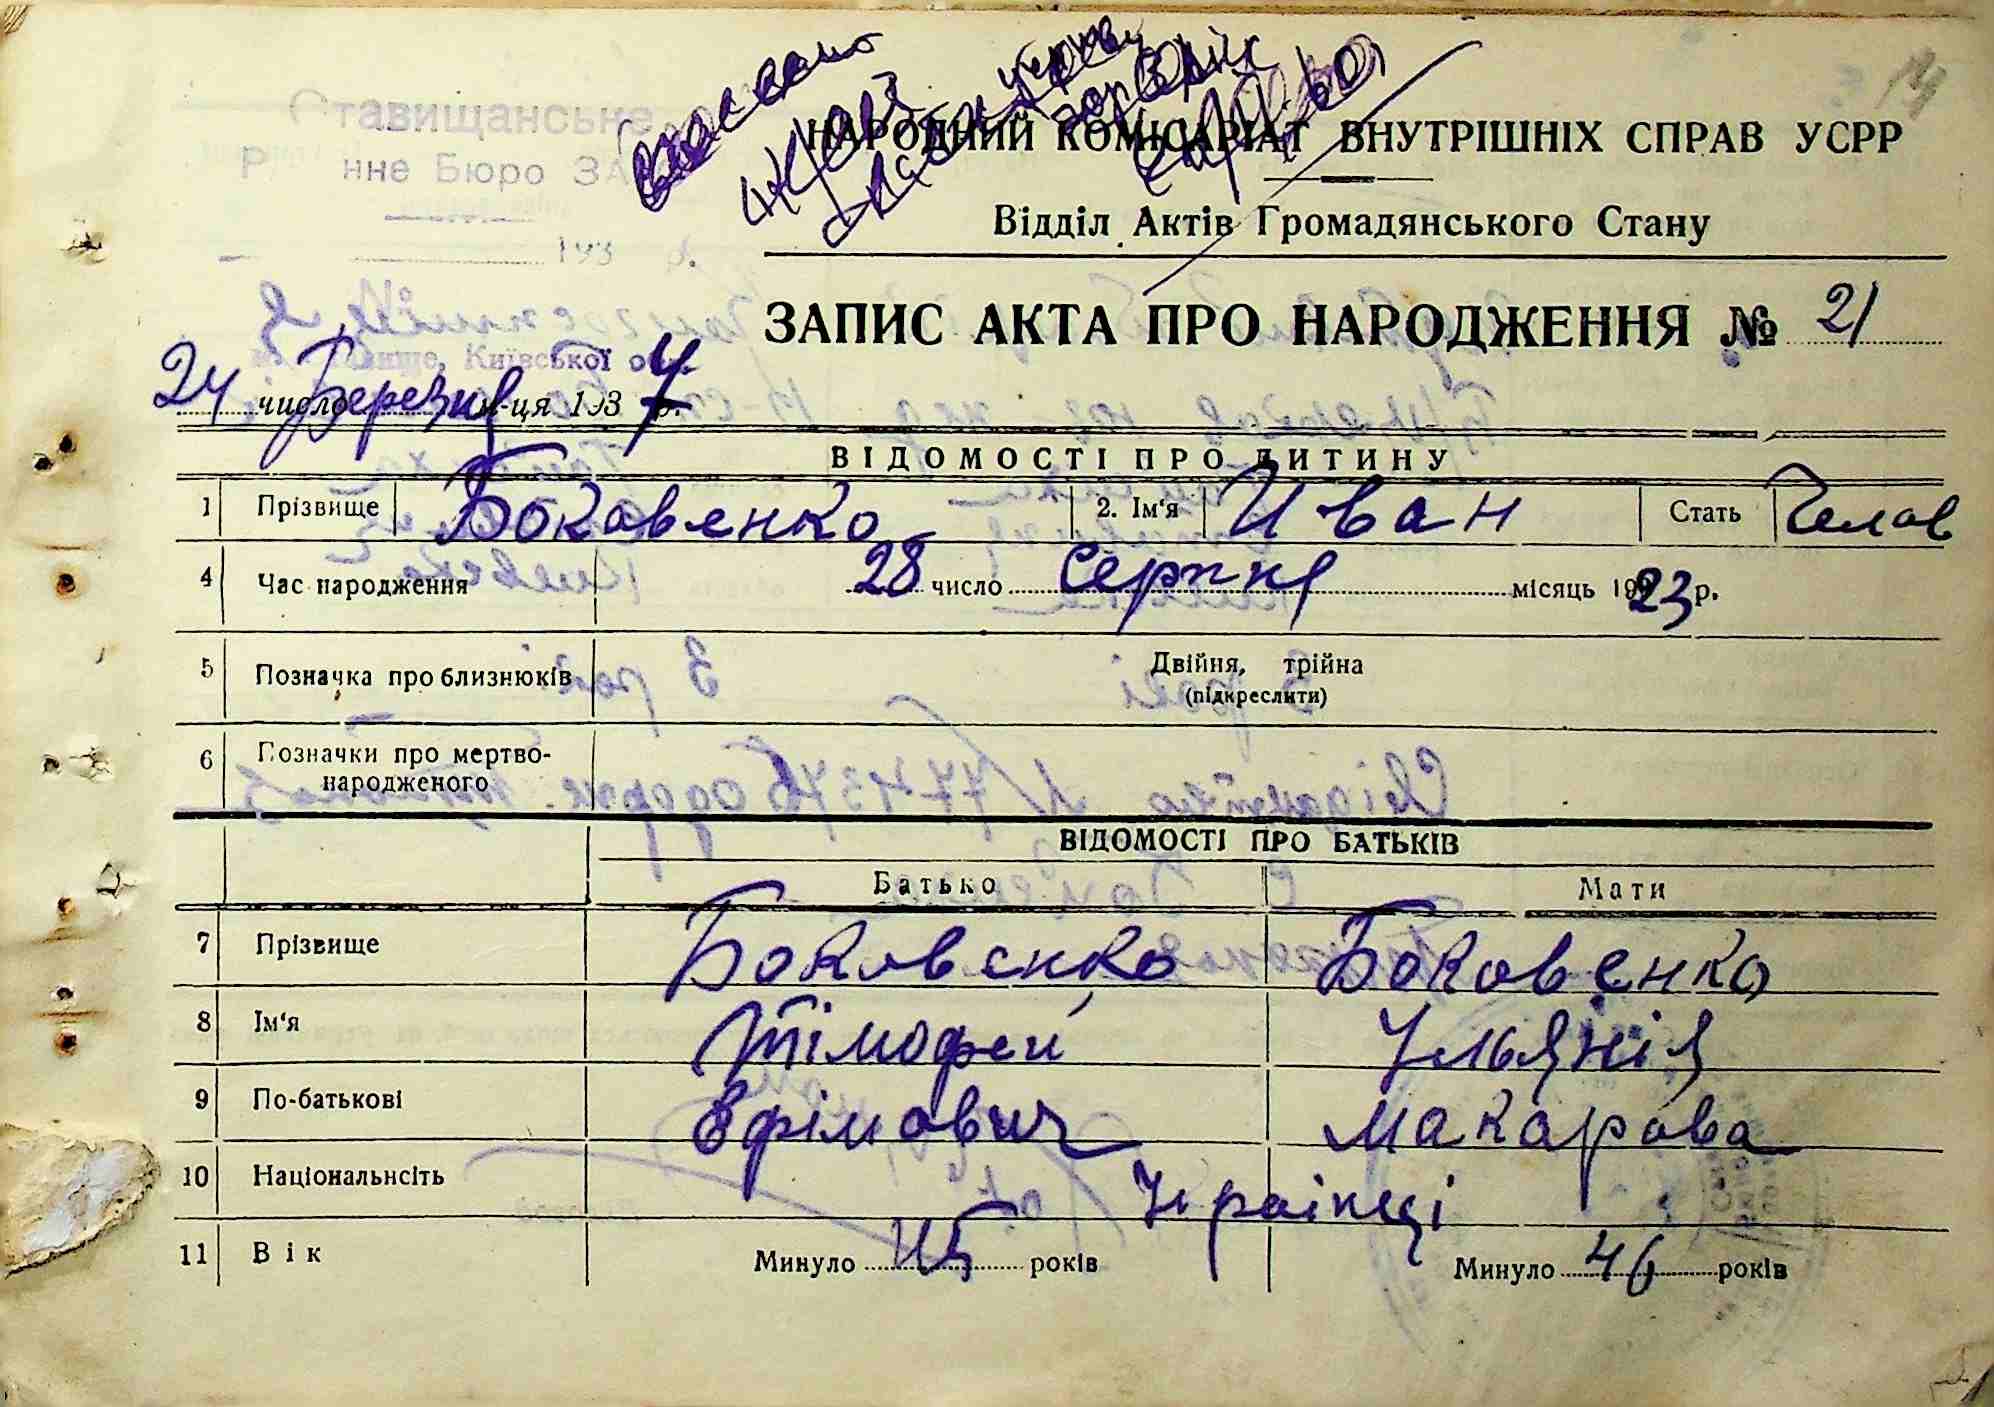 Ставищанське
нне Бюро ЗА
193 р.
ище, Київської о
14
НАРОДНИЙ КОМІСАРІАТ ВНУТРІШНІХ СПРАВ УСРР
Відділ Актів Громадянського Стану
ЗАПИС АКТА ПРО НАРОДЖЕННЯ № 21
24 число Березня м-ця 1937 р.
ВІДОМОСТІ ПРО ДИТИНУ
1 Прізвище Боковенко 2. Ім'я Иван Стать Челов
4 Час народження 28 число Серпня місяць 1923 р.
5 Позначка про близнюків Двійня, трійна
(підкреслити)
6 Позначки про мертво-
народженого
ВІДОМОСТІ ПРО БАТЬКІВ
Батько Мати
7 Прізвище Боковенко Боковенко
8 Ім'я Тімофей Ульянія
9 По-батькові Єфімович Макарова
10 Національнсіть Українці
11 Вік Минуло 45 років Минуло 46 років